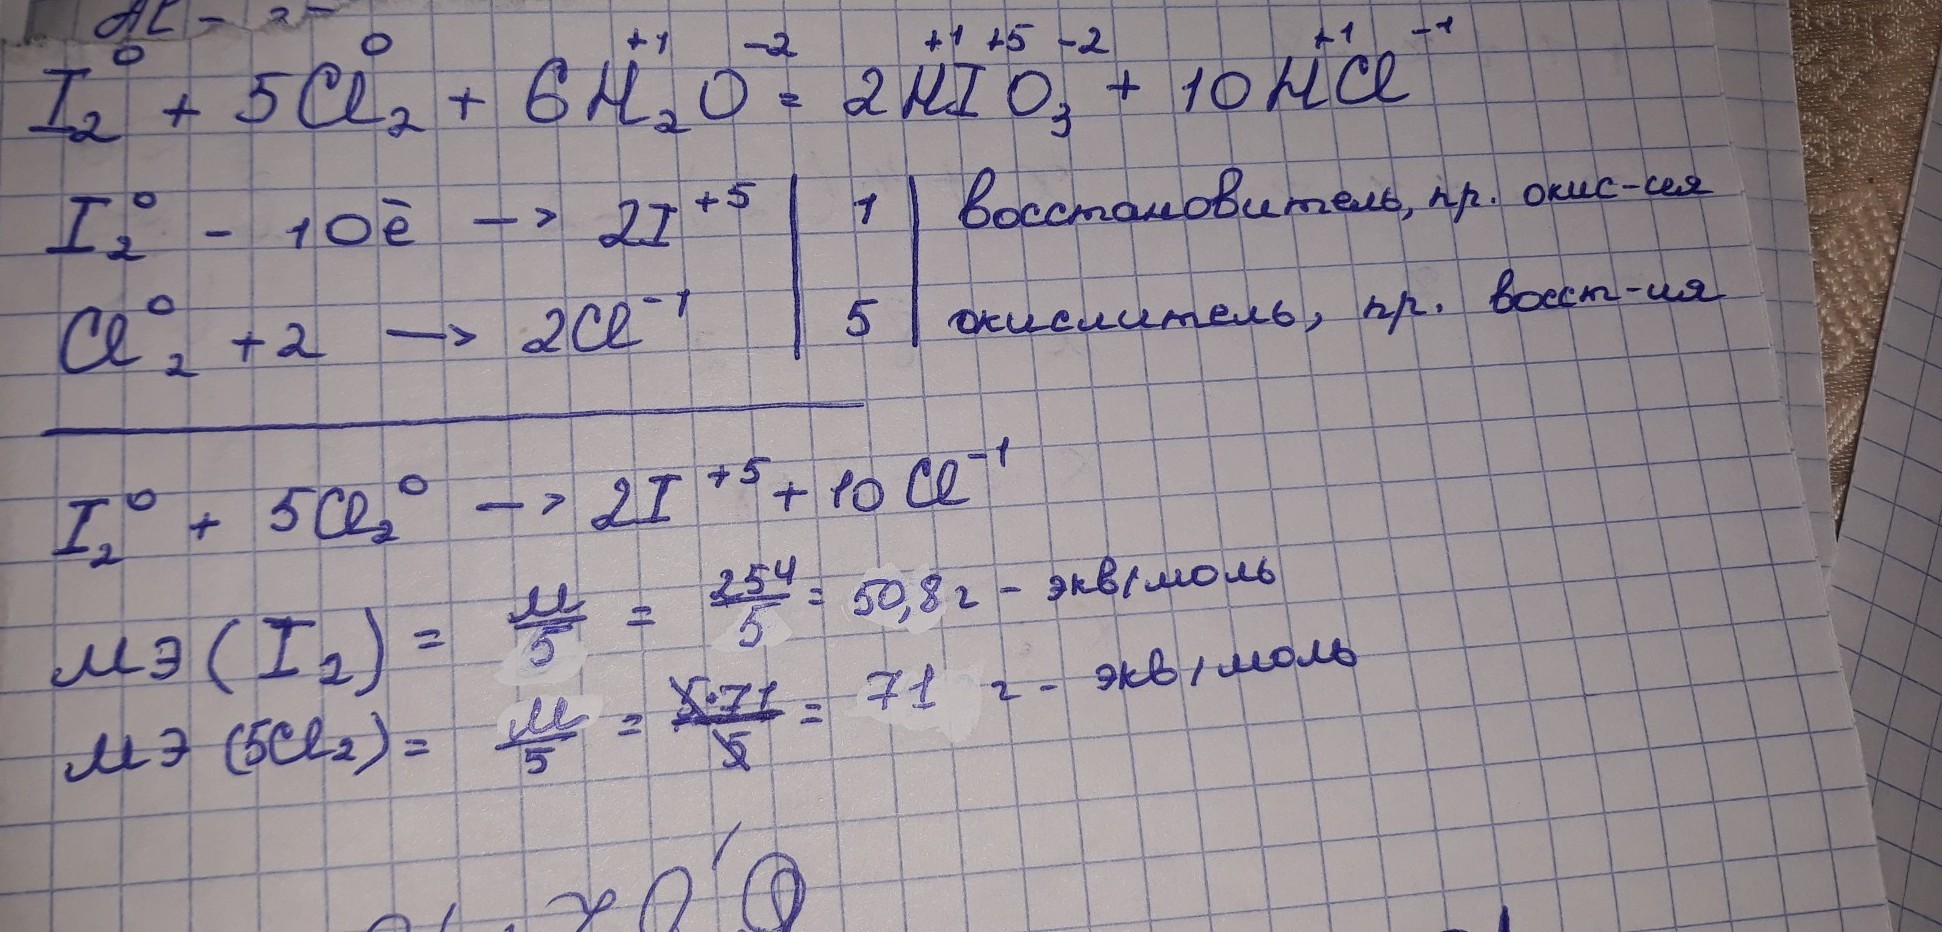 I₂⁰ + 5Cl₂⁰ + 6H₂⁺¹O⁻² = 2H⁺¹I⁺⁵O₃⁻² + 10H⁺¹Cl⁻¹
I₂⁰ - 10ē —> 2I⁺⁵ | 1 | восстановитель, пр. окис-ия
Cl₂⁰ + 2 —> 2Cl⁻¹ | 5 | окислитель, пр. восст-ия
I₂⁰ + 5Cl₂⁰ —> 2I⁺⁵ + 10Cl⁻¹
МЭ(I₂) = М/5 = 254/5 = 50,8 г - экв/моль
МЭ(5Cl₂) = М/5 = 5·71/5 = 71 г - экв/моль